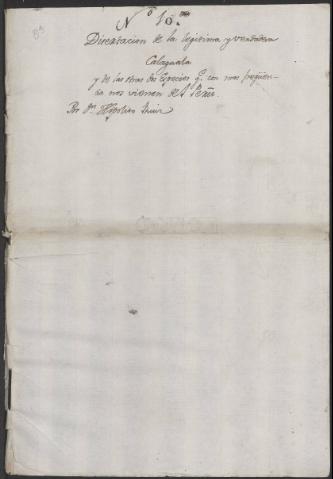 Nº 10.
Disertacion de la legitima y verdadera
Calaguala
y de las otras dos Especies q. con mas freqüen-
cia nos vienen del Perú.
Por Dn. Hipolito Ruiz